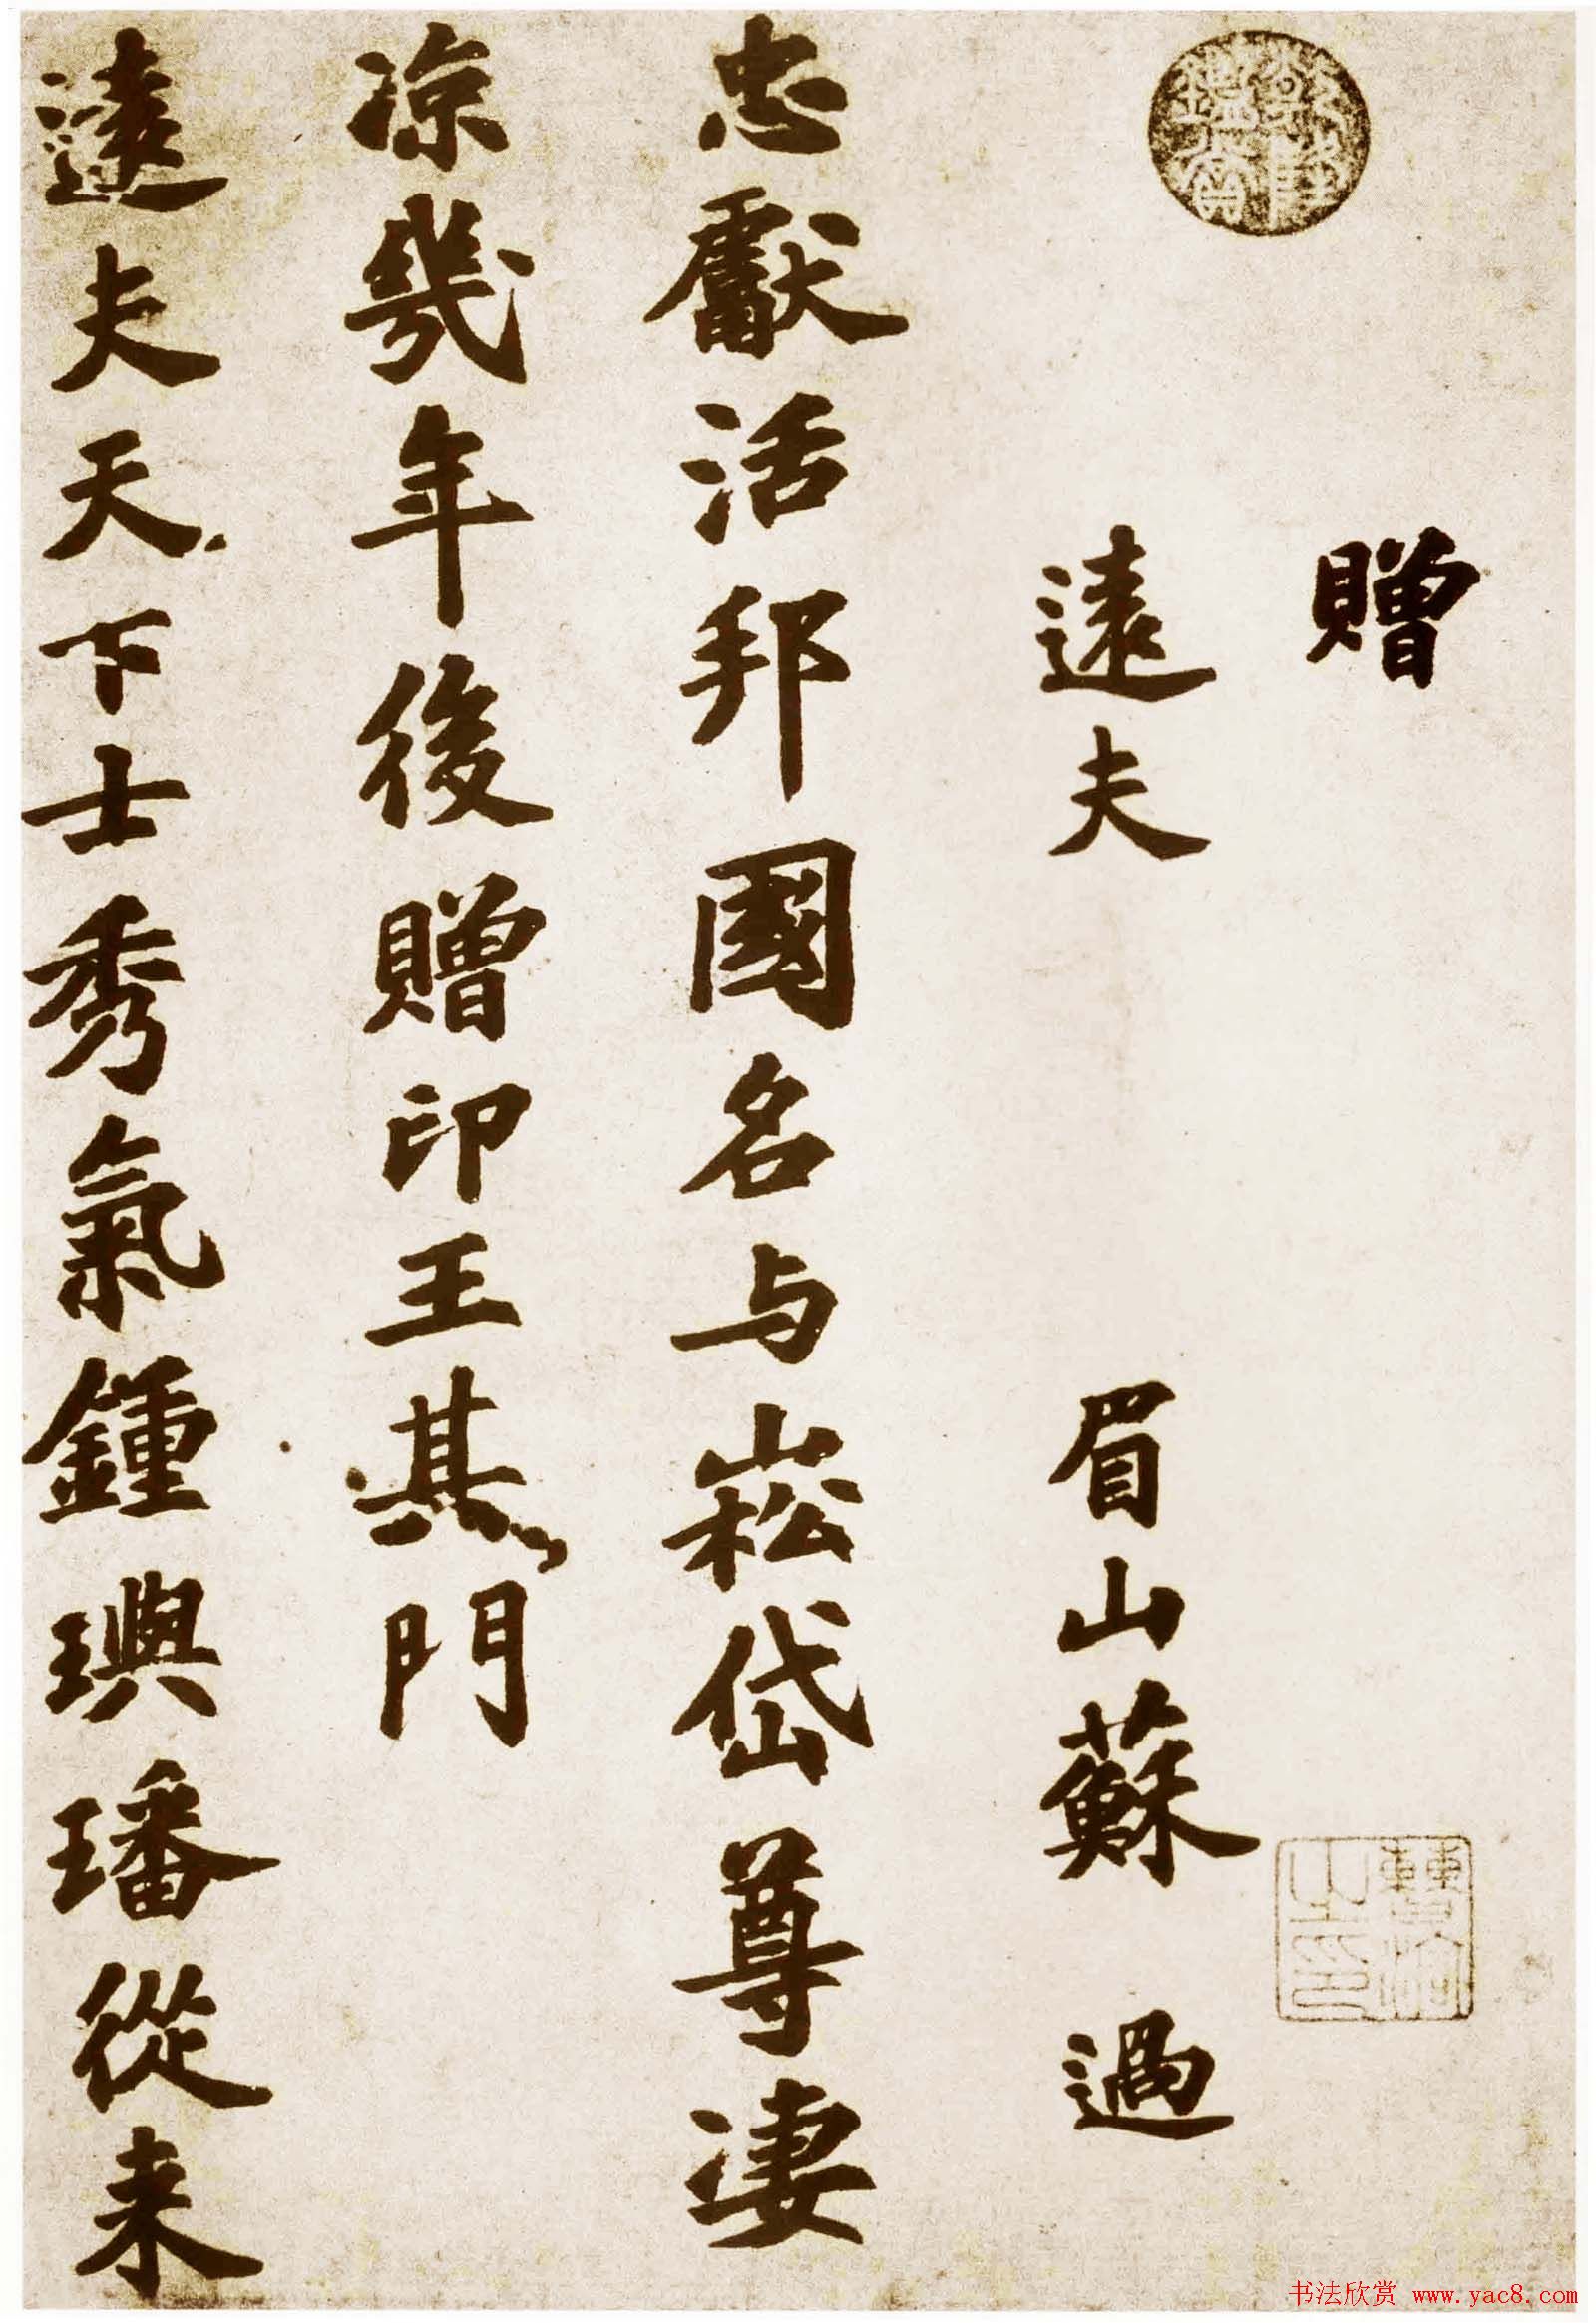 乾隆
鑑賞
贈
遠夫
眉山蘇 過
之印
忠獻活邦國名与崧岱尊凄
凉幾年後贈印王其門
遠夫天下士秀氣鍾璵璠從来
书法欣赏 www.yac8.com